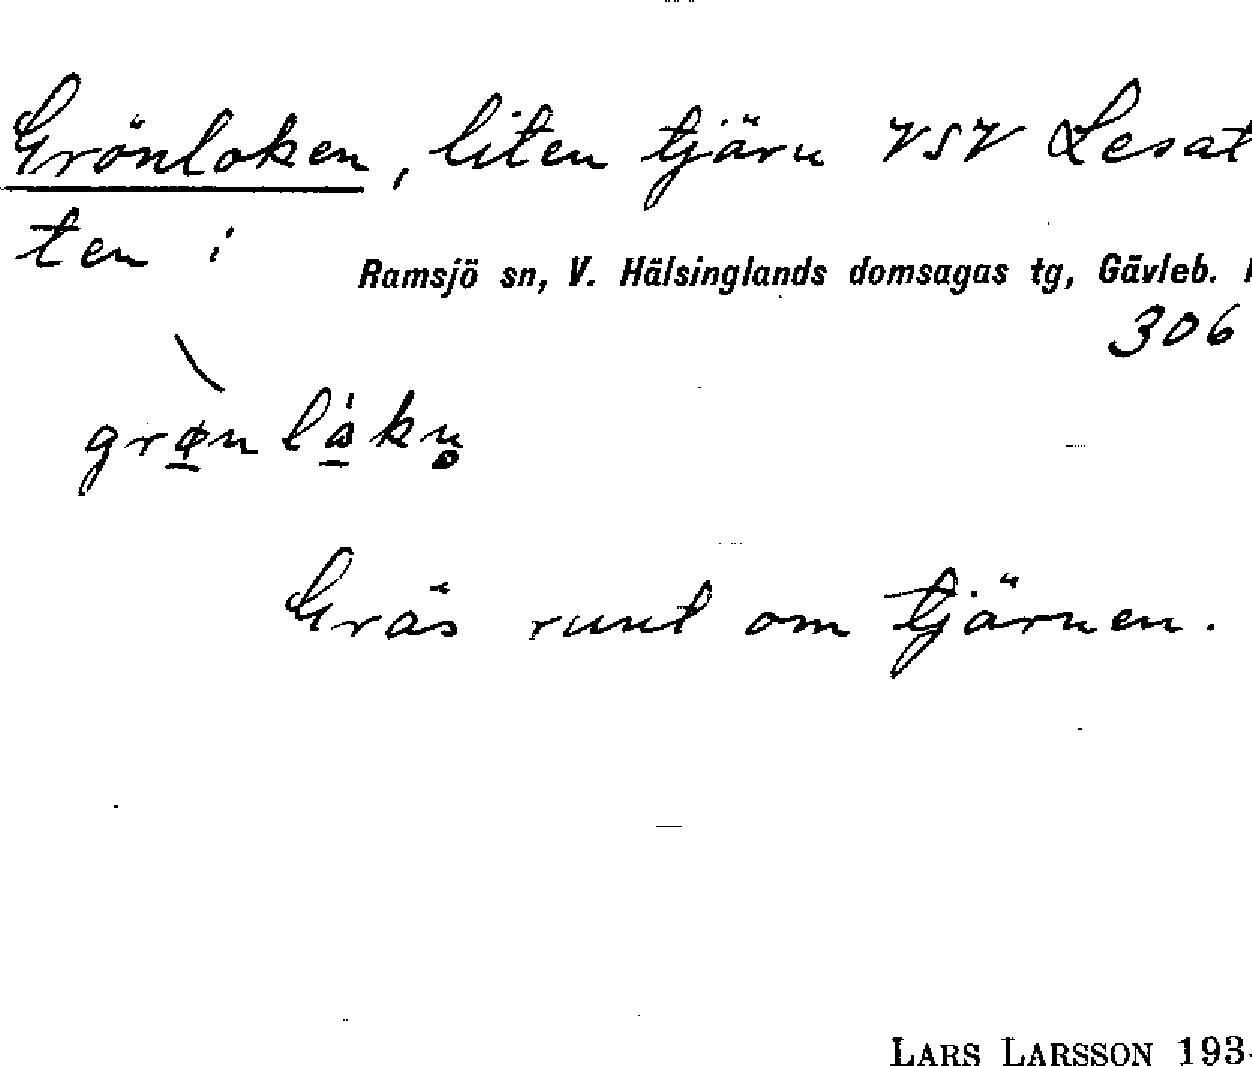 Grönloken, liten tjärn VSV Lesat
ten i
Ramsjö sn, V. Hälsinglands domsagas tg, Gävleb.
306
Gräs runt om tjärnen.
LARS LARSSON 193